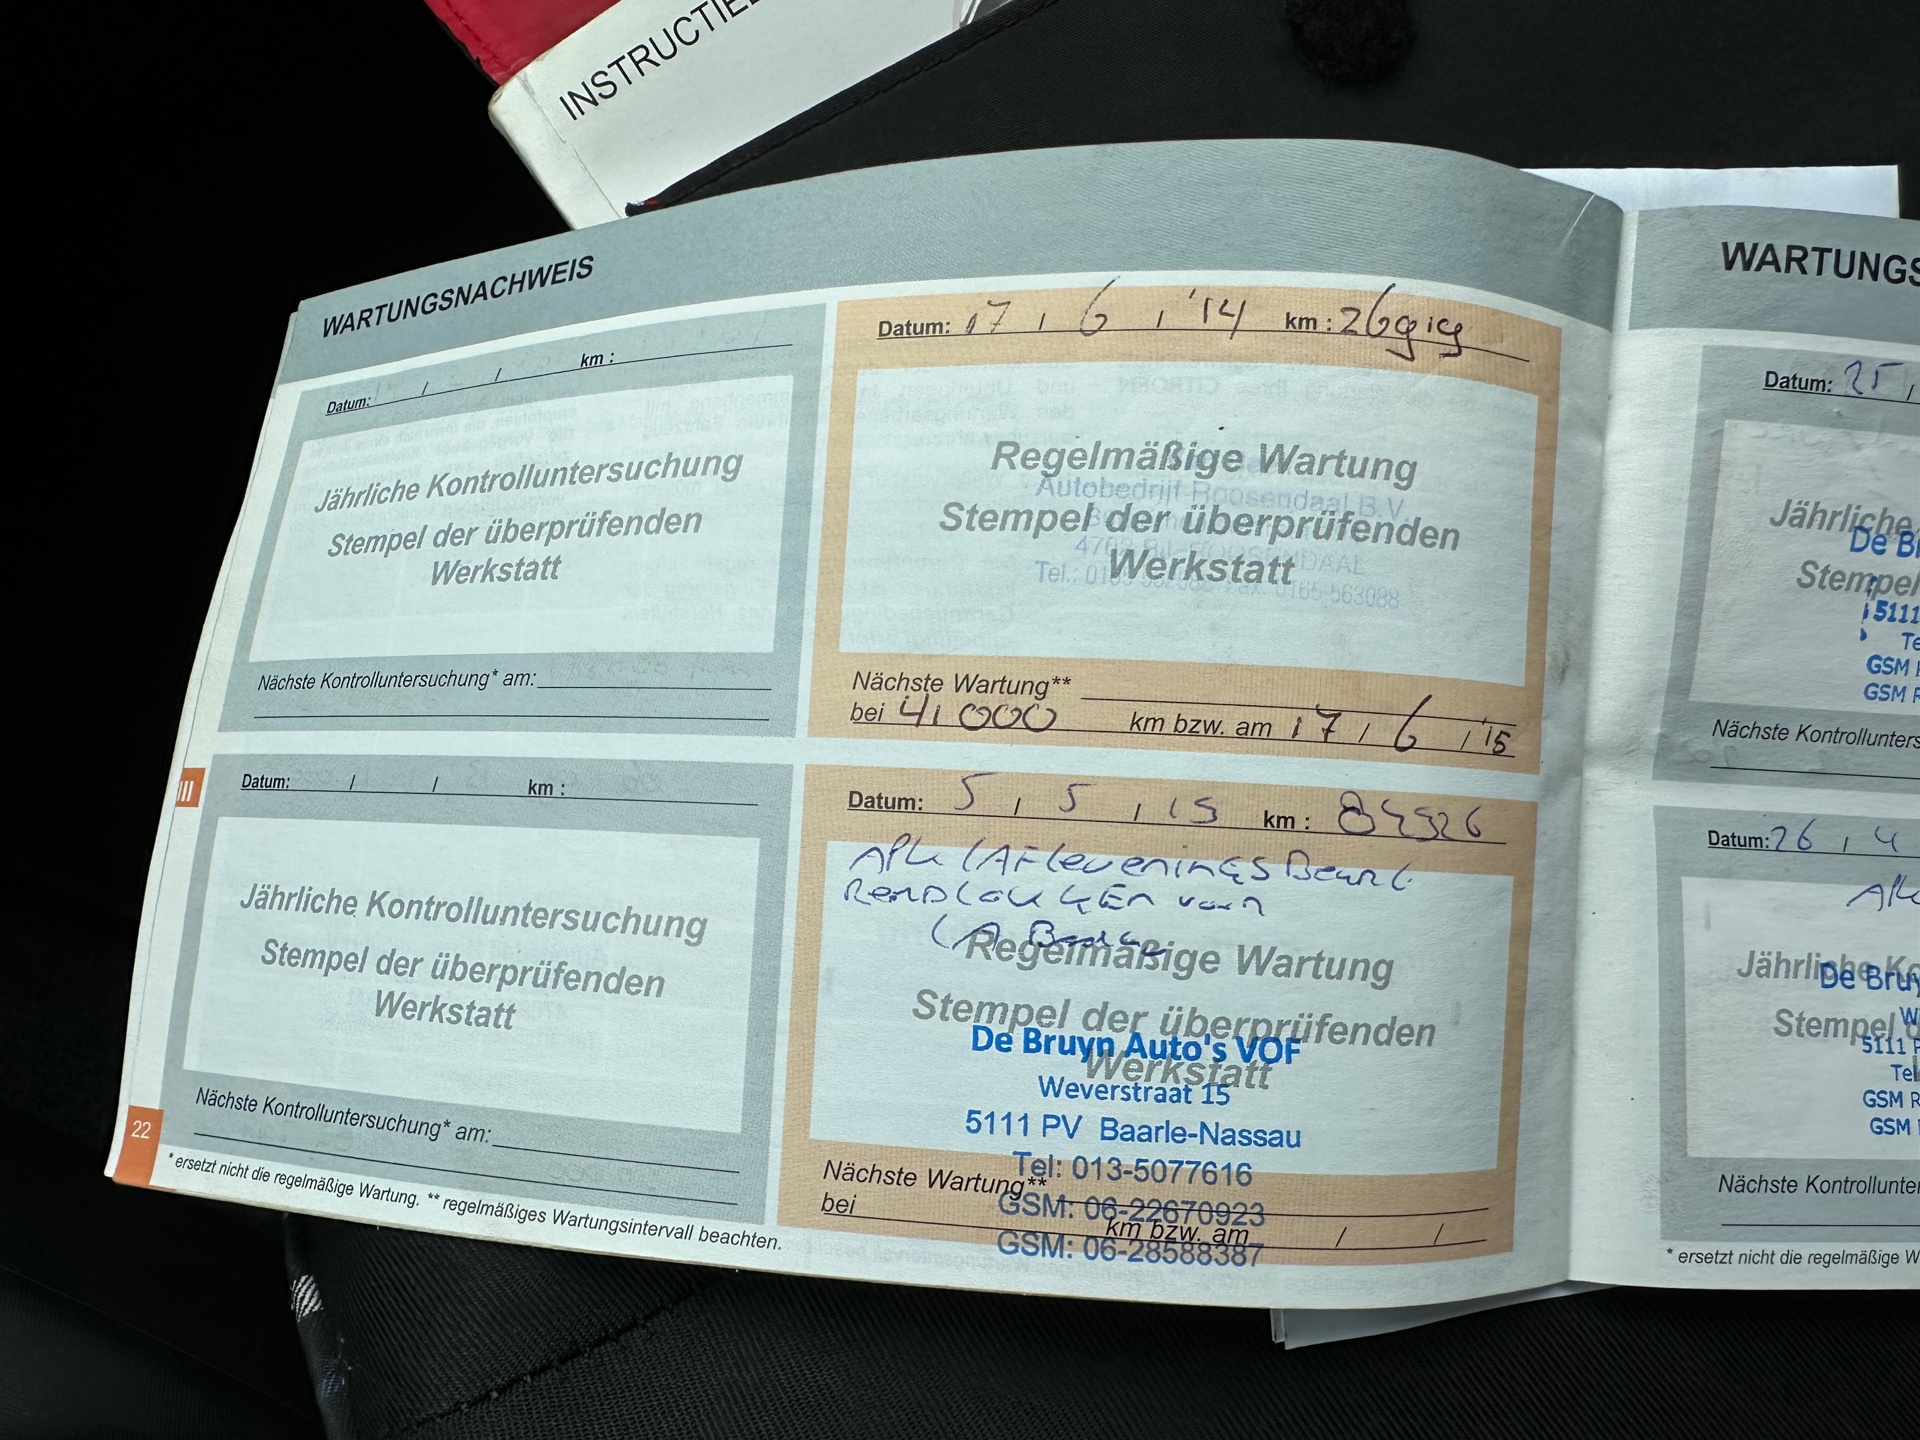 INSTRUCTIE
WARTUNGSNACHWEIS
Datum: / / km :
Jährliche Kontrolluntersuchung
Stempel der überprüfenden
Werkstatt
Nächste Kontrolluntersuchung* am:
Datum: 17 / 6 / '14 km : 26919
Regelmäßige Wartung
Autobedrijf Roosendaal B.V.
Stempel der überprüfenden
Werkstatt
Tel.: Fax: 0165-563088
Nächste Wartung**
bei 41000 km bzw. am 17 / 6 / '15
III
Datum: / / km :
Jährliche Kontrolluntersuchung
Stempel der überprüfenden
Werkstatt
Nächste Kontrolluntersuchung* am:
Datum: 5 / 5 / 15 km :
APK
Regelmäßige Wartung
Stempel der überprüfenden
De Bruyn Auto's VOF
Werkstatt
Weverstraat 15
5111 PV Baarle-Nassau
Tel: 013-5077616
Nächste Wartung**
GSM: 06-22670923
bei km bzw. am / /
GSM: 06-28588387
22
* ersetzt nicht die regelmäßige Wartung. ** regelmäßiges Wartungsintervall beachten.
WARTUNGS
Datum: 25 /
Jährliche
De B
Stempel
5111
Te
GSM
GSM
Nächste Kontrollunters
Datum: 26 / 4
APK
Jährliche Ko
De Bruy
Stempel d
5111 P
Tel
GSM
GSM
Nächste Kontrollunter
* ersetzt nicht die regelmäßige W